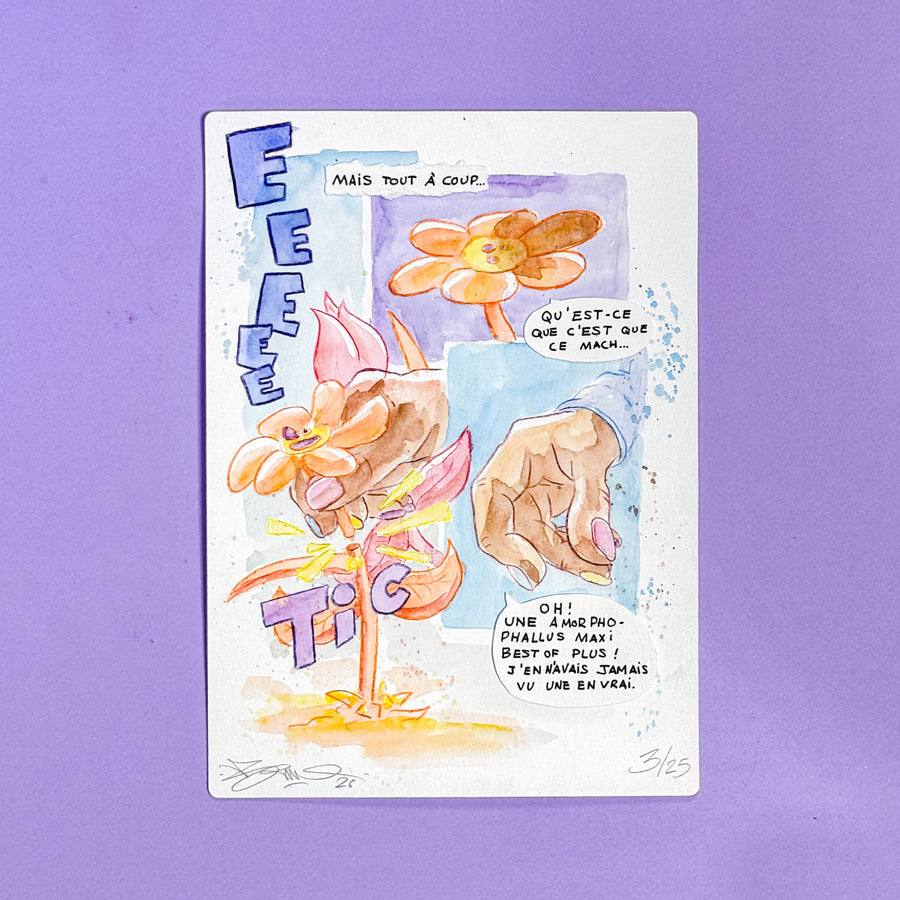 MAIS TOUT À COUP...
QU'EST-CE
QUE C'EST QUE
CE MACH...
E
E
E
E
E
TiC
OH!
UNE AMORPHO-
PHALLUS MAXi
BEST OF PLUS!
J'EN N'AVAIS JAMAIS
VU UNE EN VRAI.
3/25